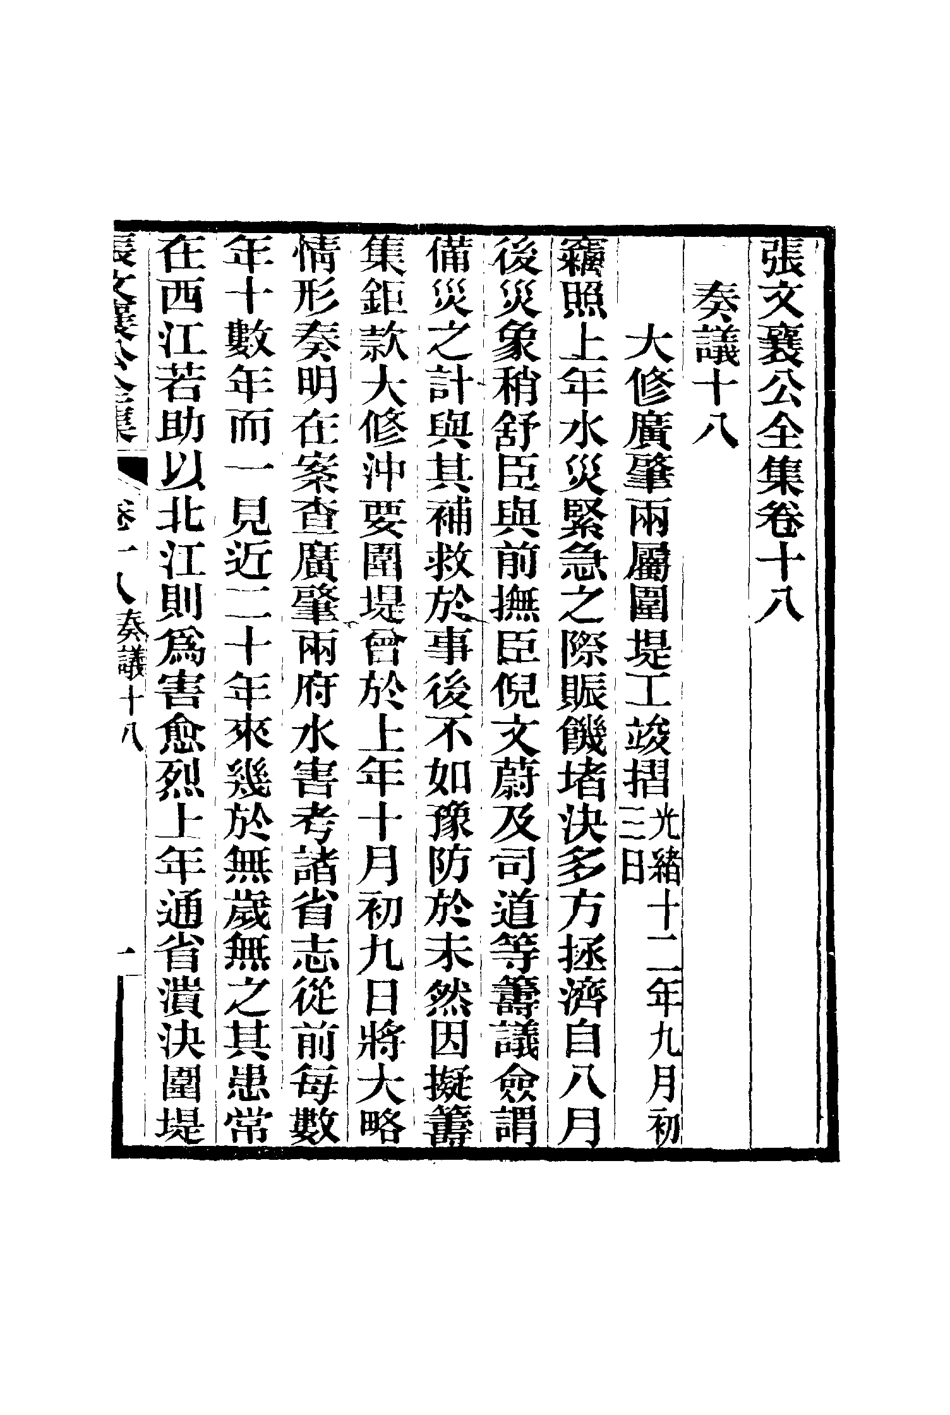 張文襄公全集卷十八
奏議十八
大修廣肇兩屬圍堤工竣摺光緒十二年九月初三日
竊照上年水災緊急之際賑饑堵決多方拯濟自八月
後災象稍舒臣與前撫臣倪文蔚及司道等籌議僉謂
備災之計與其補救於事後不如豫防於未然因擬籌
集鉅款大修沖要圍堤曾於上年十月初九日將大略
情形奏明在案查廣肇兩府水害考諸省志從前每數
年十數年而一見近二十年來幾於無歲無之其患常
在西江若助以北江則為害愈烈上年通省潰決圍堤
張文襄公全集 卷十八 奏議十八 一